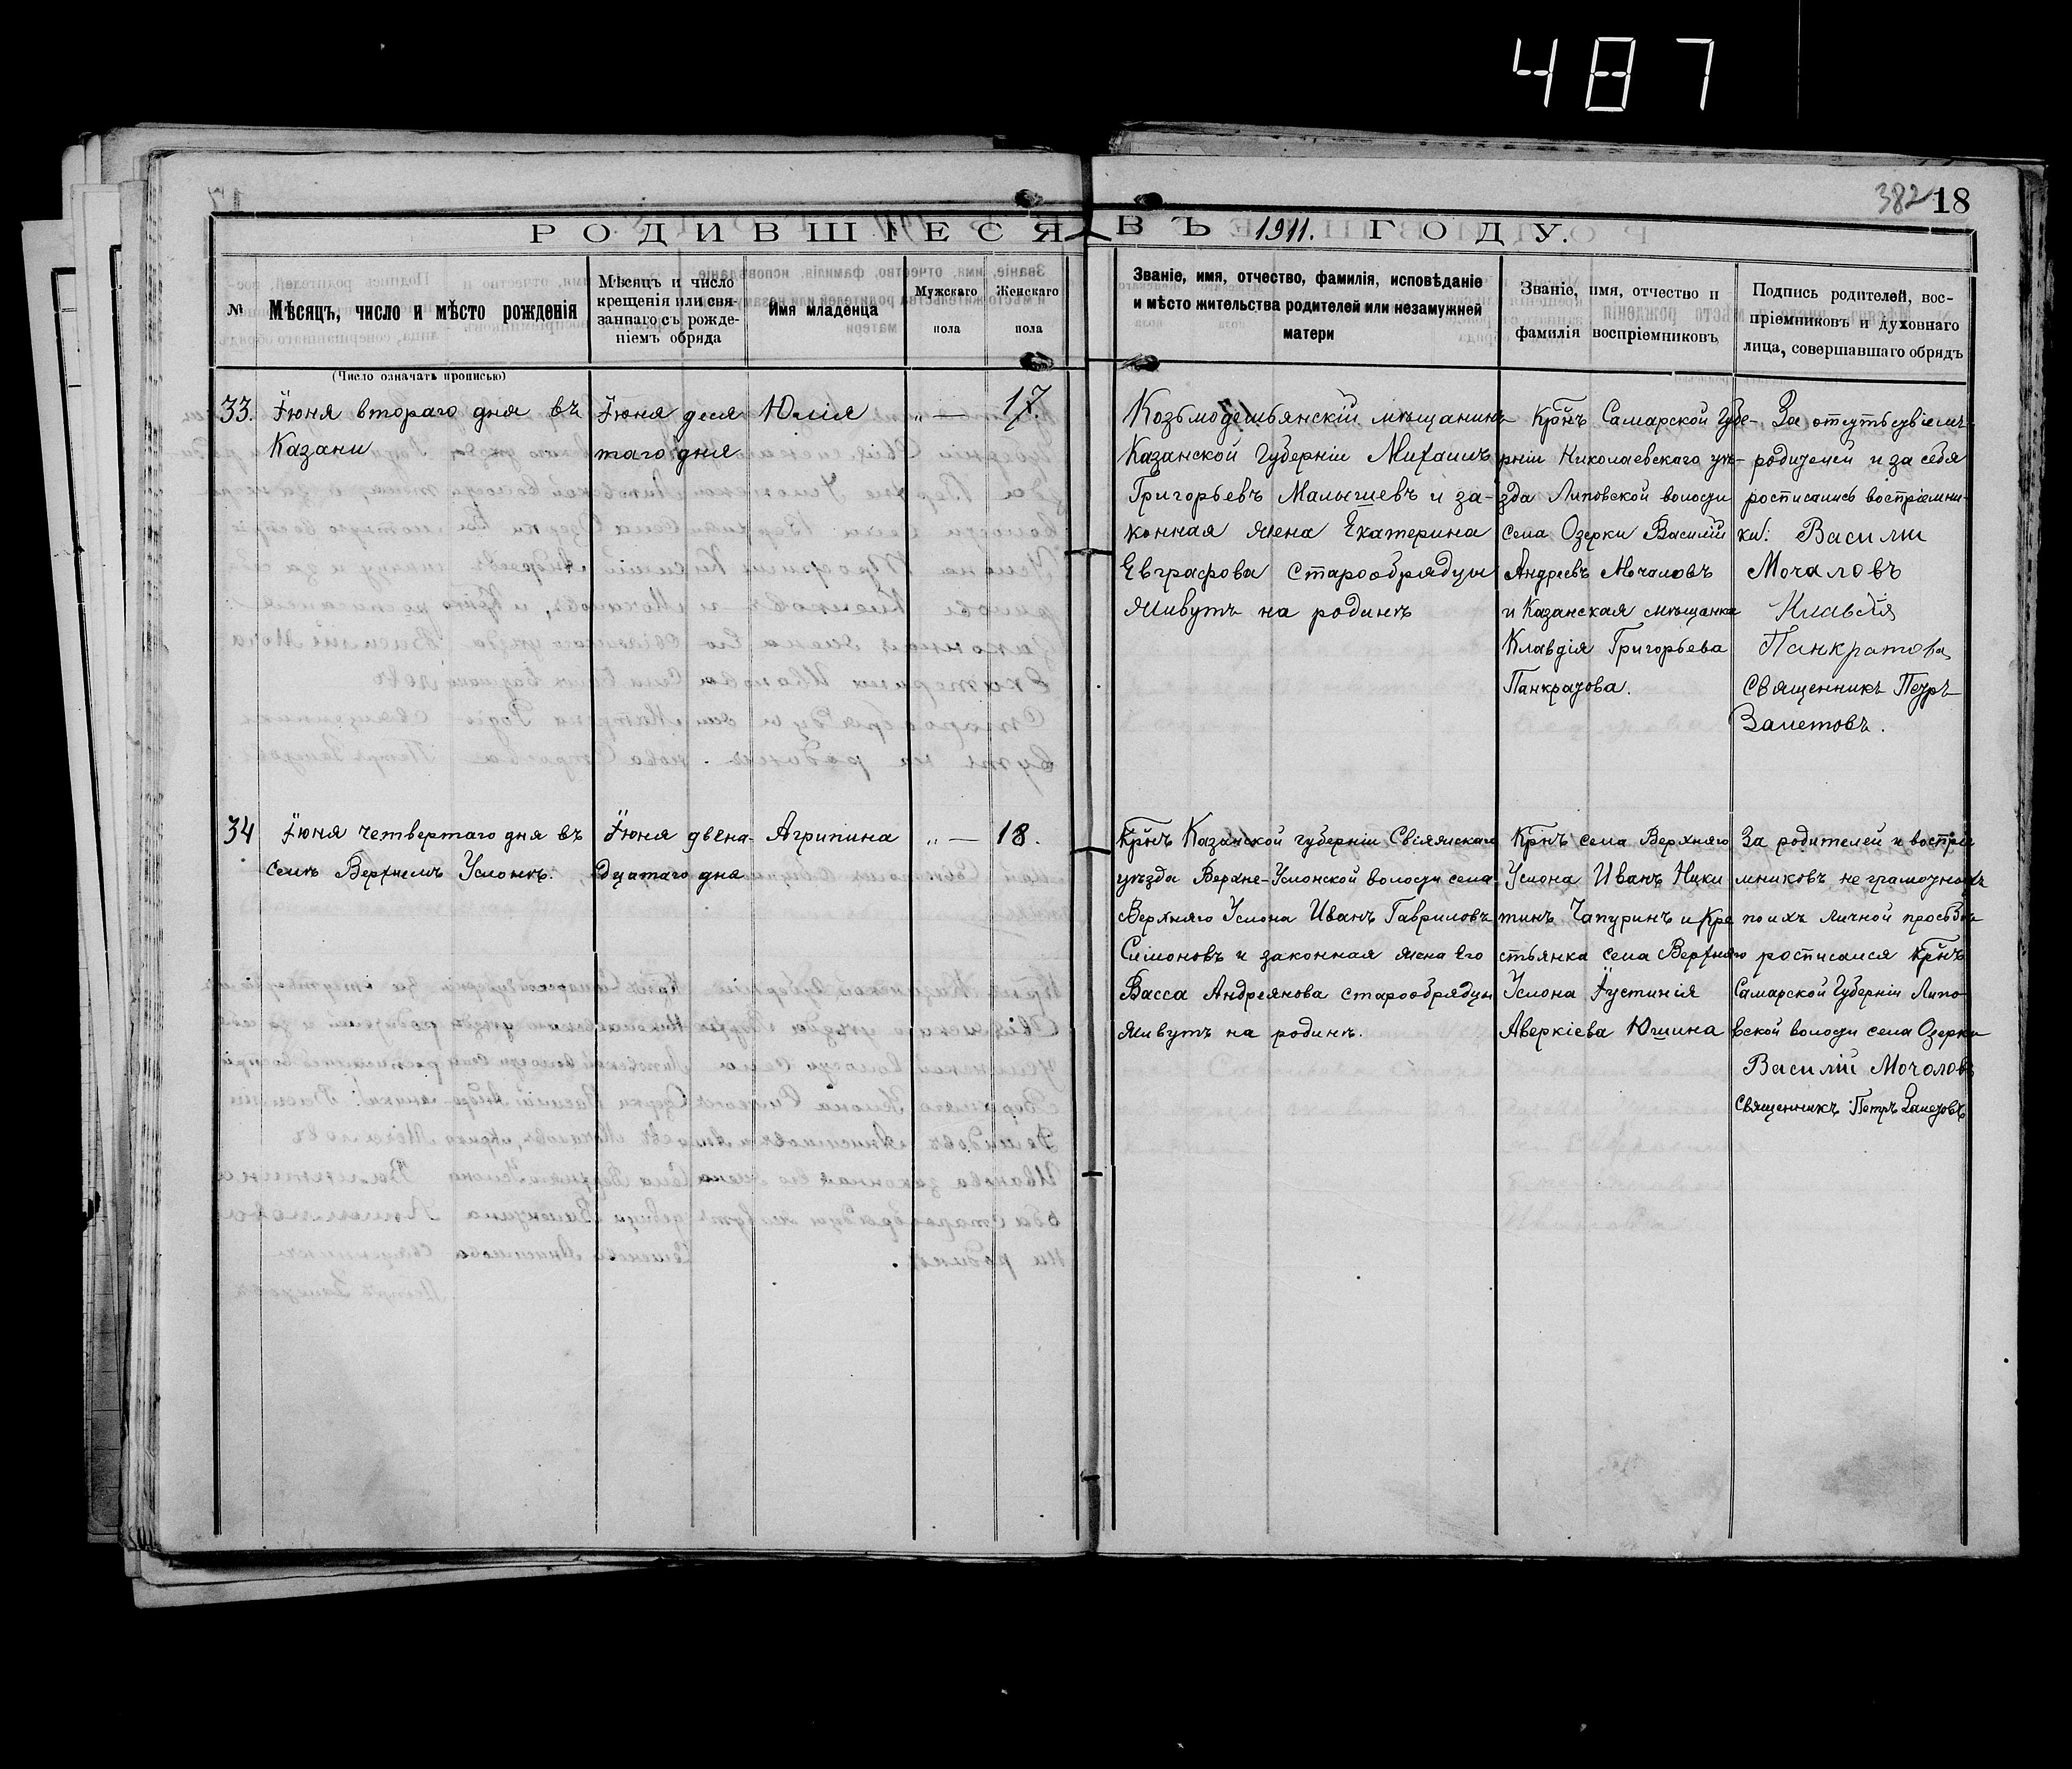 487
382 18
РОДИВШІЕСЯ ВЪ 1911. ГОДУ.
№
Мѣсяцъ, число и мѣсто рожденія
Мѣсяцъ и число
крещенія или свя-
заннаго съ рожде-
ніемъ обряда
Имя младенца
Мужскаго
пола
Женскаго
пола
Званіе, имя, отчество, фамилія, исповѣданіе
и мѣсто жительства родителей или незамужней
матери
Званіе, имя, отчество и
фамилія воспріемниковъ
Подпись родителей, вос-
пріемниковъ и духовнаго
лица, совершавшаго обрядъ
(Число означать прописью)
33.
Іюня втораго дня въ
Казани
Іюня деся
таго дня
Юлія
„ —
17.
Козьмодемьянскій мѣщанинъ
Казанской Губерніи Михаилъ
Григорьевъ Малышевъ и за-
конная жена Екатерина
Евграфова старообрядцы
живутъ на родинѣ
Крнъ Самарской Губе-
рніи Николаевскаго уѣ-
зда Липовской волости
села Озерки Василій
Андреевъ Мочаловъ
и Казанская мѣщанка
Клавдія Григорьева
Панкратова.
За отсутсвіемъ
родителей и за себя
росписались воспріемни-
ки: Василий
Мочаловъ
Клавдія
Панкратова
Священникъ Петръ
Залетовъ.
34
Іюня четвертаго дня въ
селѣ Верхнемъ Услонѣ.
Іюня двена-
дцатаго дня
Агрипина
„ —
18.
Крнъ Казанской губерніи Свіяжскаго
уѣзда Верхне-Услонской волости села
Верхняго Услона Иванъ Гавриловъ
Симоновъ и законная жена его
Васса Андреянова старообрядцы
живутъ на родинѣ.
Крнъ села Верхняго
Услона Иванъ Ники
тинъ Чапуринъ и Кре
стьянка села Верхняго
Услона Іустинія
Аверкіева Юшина
За родителей и воспріе
мниковъ не грамотныхъ
по ихъ личной просьбѣ
росписался Крнъ
Самарской Губерніи Липо
вской волости села Озерки
Василій Мочаловъ
Священникъ Петръ Залетовъ